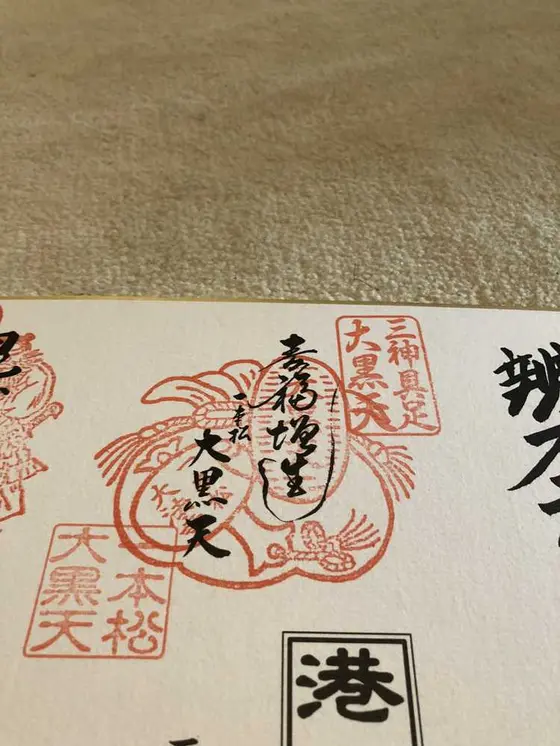 辨才
三神具足
大黒天
福増生
一本松
大黒天
一本松
大黒天
港